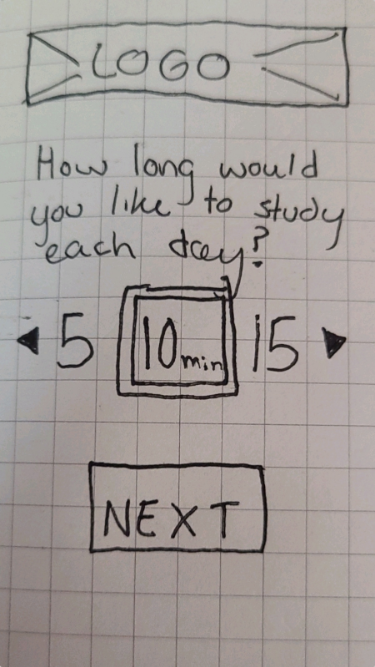 LOGO
How long would
you like to study
each day?
◀ 5 10 min 15 ▶
NEXT